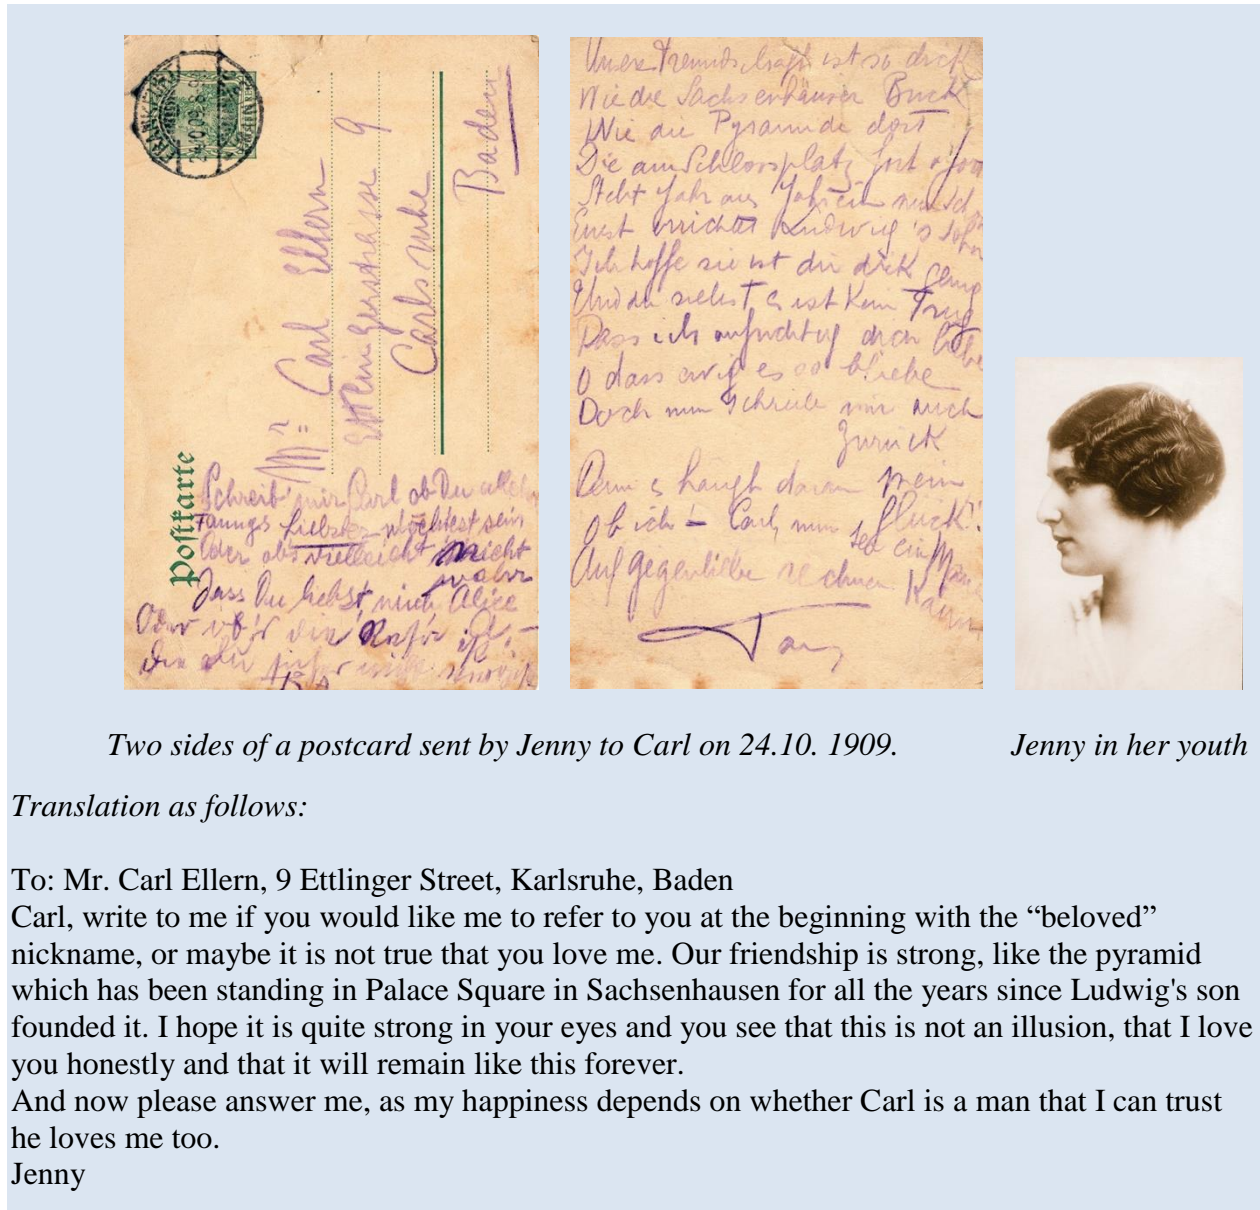 24.10.09.8-9
Postkarte
Mr. Carl Ellern
Ettlingerstrasse 9
Carlsruhe
Baden
Schreib' mir Carl ob Du
Liebster möchtest sein
Oder ob's vielleicht nicht
wahr
Dass Du liebst mich Alice
Oder ob's die
die Du
Unsere Freundschaft ist so dick
Wie die Sachsenhäuser Brück
Wie die Pyramide dort
Die am Schlossplatz fort
Steht Jahr aus Jahr ein nun
Einst errichtet Ludwig's Sohn
Ich hoffe sie ist dir dick genug
Und du siehst es ist kein Trug
Dass ich aufrichtig dich liebe
O dass ewig es so bliebe
Doch nun schreib mir auch
zurück
Denn es hängt daran mein
Glück!!
ob ich - Carl, nun sei ein Mann
Auf Gegenliebe rechnen kann
Two sides of a postcard sent by Jenny to Carl on 24.10. 1909.
Jenny in her youth
Translation as follows:
To: Mr. Carl Ellern, 9 Ettlinger Street, Karlsruhe, Baden
Carl, write to me if you would like me to refer to you at the beginning with the “beloved”
nickname, or maybe it is not true that you love me. Our friendship is strong, like the pyramid
which has been standing in Palace Square in Sachsenhausen for all the years since Ludwig's son
founded it. I hope it is quite strong in your eyes and you see that this is not an illusion, that I love
you honestly and that it will remain like this forever.
And now please answer me, as my happiness depends on whether Carl is a man that I can trust
he loves me too.
Jenny